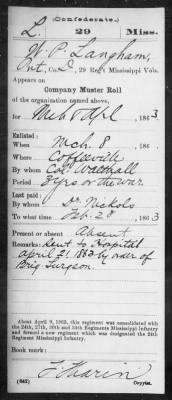 (Confederate.)
L. 29 Miss.
W. P. Langham,
Co. D, 29 Reg't Mississippi Vols.
Appears on
Company Muster Roll
of the organization named above,
for Mch & Apl, 1863
Enlisted:
When Mch 8, 186
Where Coffeeville
By whom Col Walthall
Period 3 yrs or the war.
Last paid:
By whom Dr. Nickols
To what time Feb. 28, 1863
Present or absent Absent
Remarks: Sent to Hospital
April 21 1863 by order of
Brig Surgeon.
About April 9, 1865, this regiment was consolidated with
the 24th, 27th, 30th and 34th Regiments Mississippi Infantry
and formed a new regiment which was designated the 24th
Regiment Mississippi Infantry.
Book mark:
(642)
Copyist.